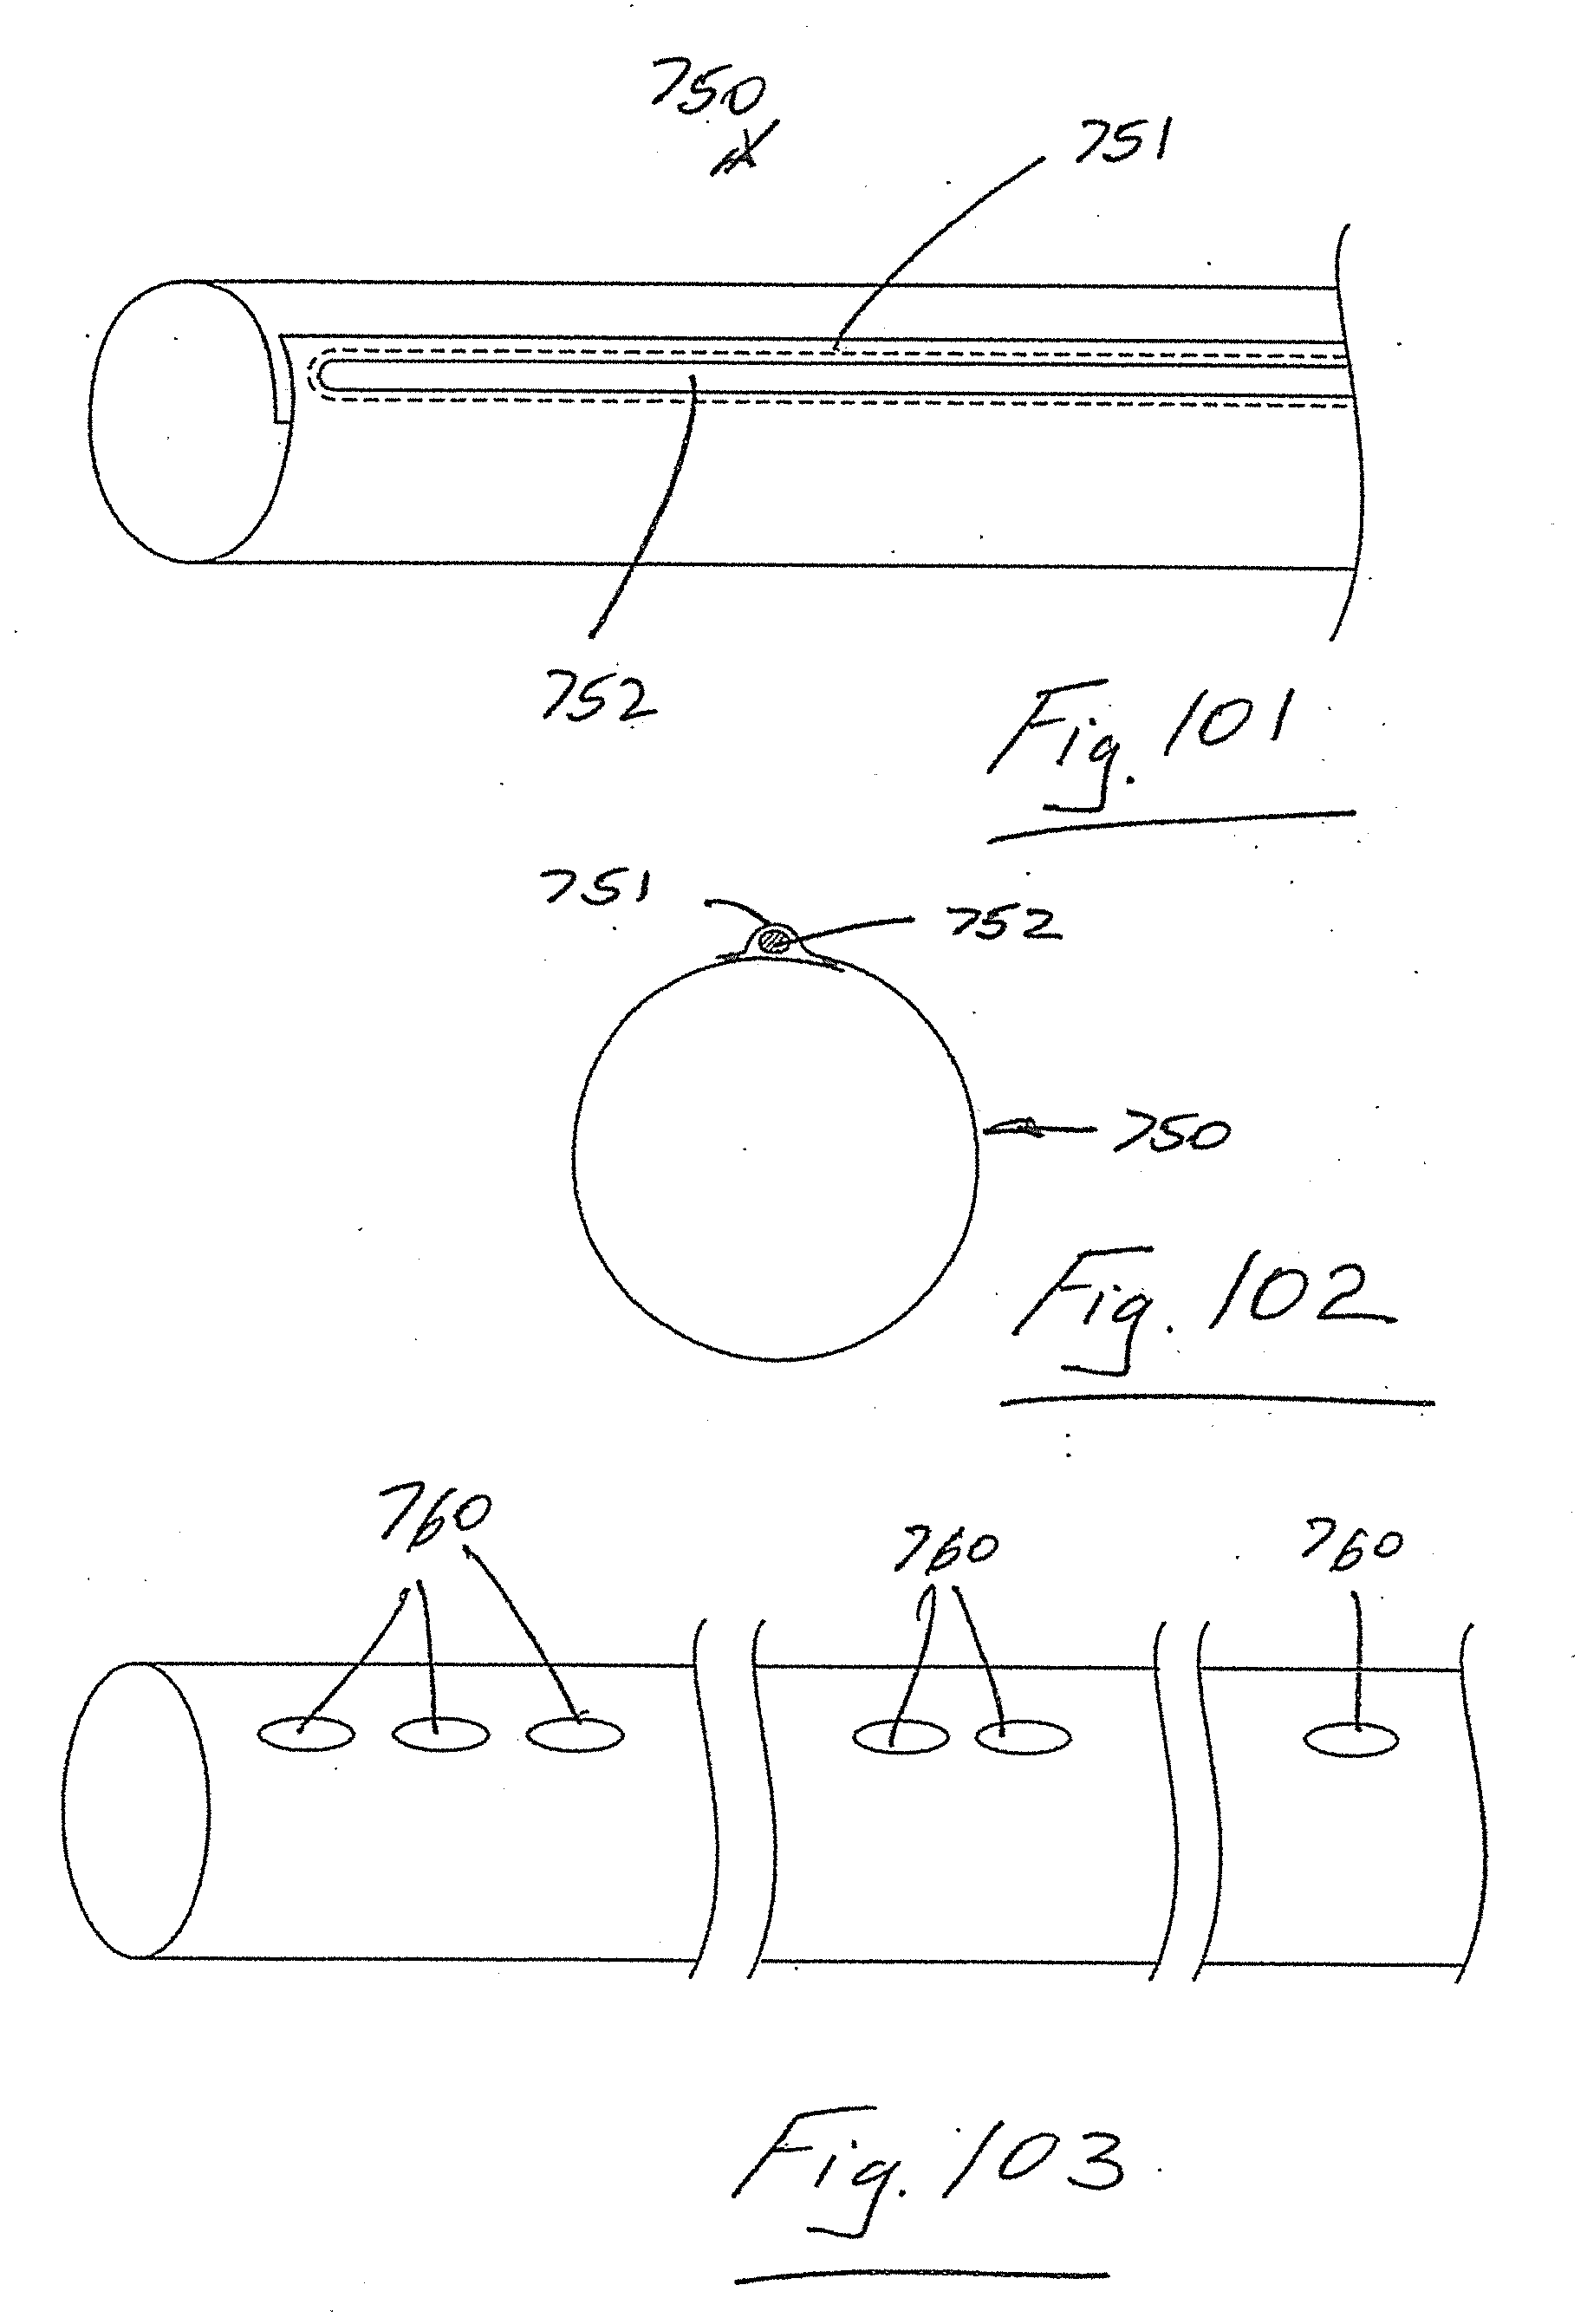 750
751
752
Fig. 101
751
752
750
Fig. 102
760
760
760
Fig. 103